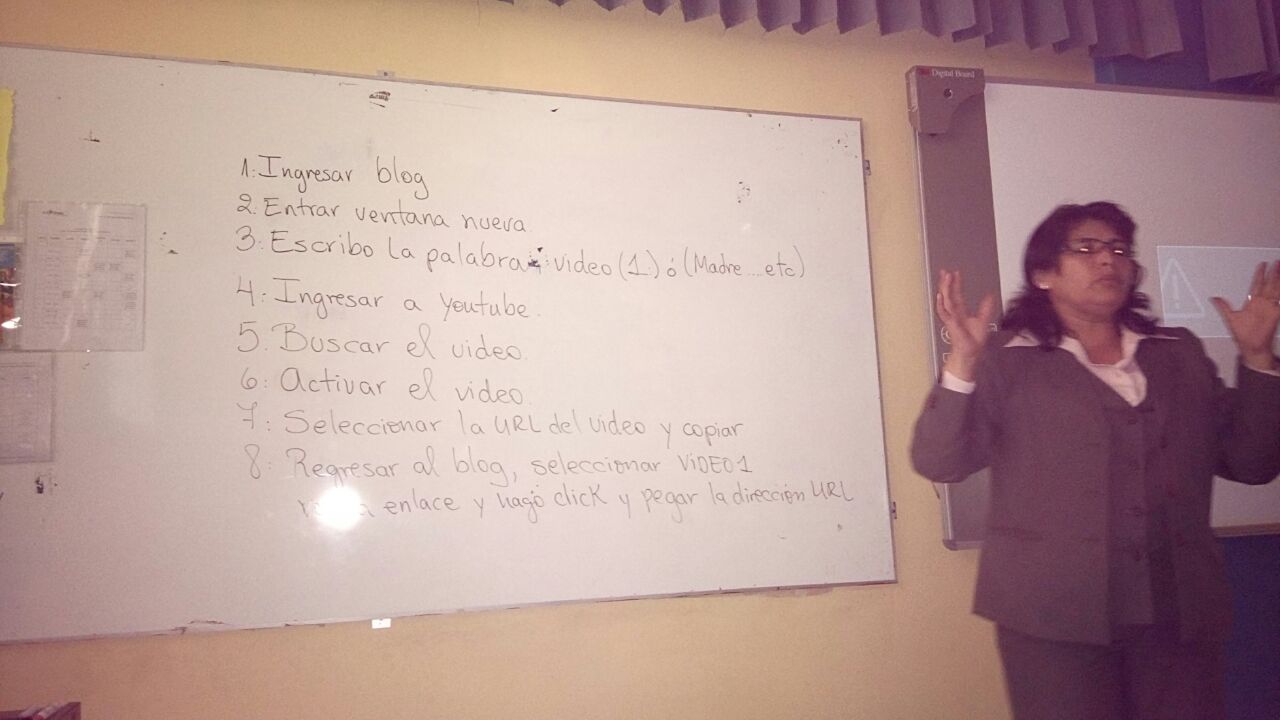 Digital Board
1. Ingresar blog
2. Entrar ventana nueva.
3. Escribo la palabra: video (1.) ó (Madre...etc)
4. Ingresar a youtube.
5. Buscar el video.
6. Activar el video.
7. Seleccionar la URL del video y copiar
8. Regresar al blog, seleccionar ViDEO1
enlace y hago click y pegar la dirección URL